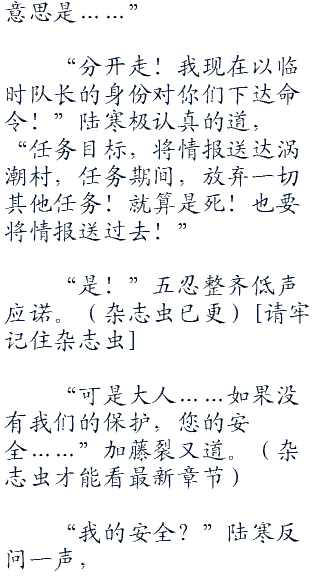 意思是……”
“分开走！我现在以临
时队长的身份对你们下达命
令！”陆寒极认真的道，
“任务目标，将情报送达涡
潮村，任务期间，放弃一切
其他任务！就算是死！也要
将情报送过去！”
“是！”五忍整齐低声
应诺。（杂志虫已更）[请牢
记住杂志虫]
“可是大人……如果没
有我们的保护，您的安
全……”加藤裂又道。（杂
志虫才能看最新章节）
“我的安全？”陆寒反
问一声，